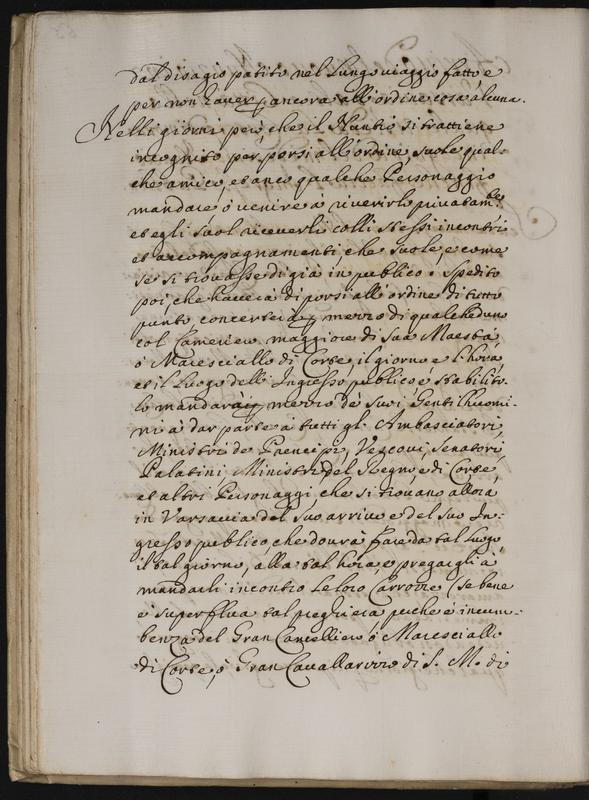 dal disagio patito nel Lungo viaggio fatto e
per non haver per ancora all'ordine cosa alcuna.
Nelli giorni però, che il Nuntio si trattiene
incognito per porsi all'ordine, suole qual-
che amico, et anco qualche Personaggio
mandare, ò venire à riverirlo privatamte
et egli suol riceverli colli stessi incontri
et accompagnamenti, che suole, e come
se si trovasse di già in publico. Spedito
poi, che haverà di porsi all'ordine di tutto
punto concerterà per mezzo di qualcheduno
col Cameriero maggiore di Sua Maestà,
ò Maresciallo di Corte, il giorno e l'hora
et il Luogo dell'Ingresso publico, e stabilito-
lo mandarà per mezzo de suoi Gentilhuomi-
ni à dar parte à tutti gl'Ambasciatori,
Ministri de Prencipi, Vescovi, Senatori,
Palatini, Ministri del Regno, e di Corte,
et altri Personaggi, che si trovano allora
in Varsavia del suo arrivo, e del suo In-
gresso publico che dovrà fare da tal Luogo,
il tal giorno, alla tal hora, e pregargli à
mandarli incontro le loro Carrozze (se bene
è superflua tal preghiera perche è incum-
benza del Gran Cancelliero ò Maresciallo
di Corte, ò Gran Cavallarizzo di S. M. di